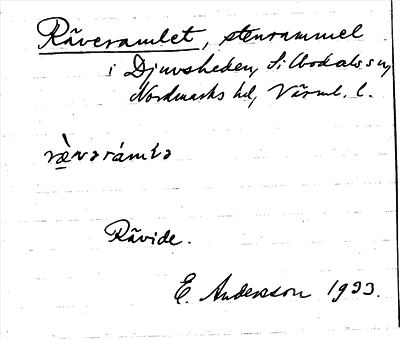 Räveramlet, stenrammel
i Djuvsheden, Silbodals sn,
Nordmarks hd, Värml. l.
ræ̀vərámɫə
Rävide.
E. Andersson 1933.